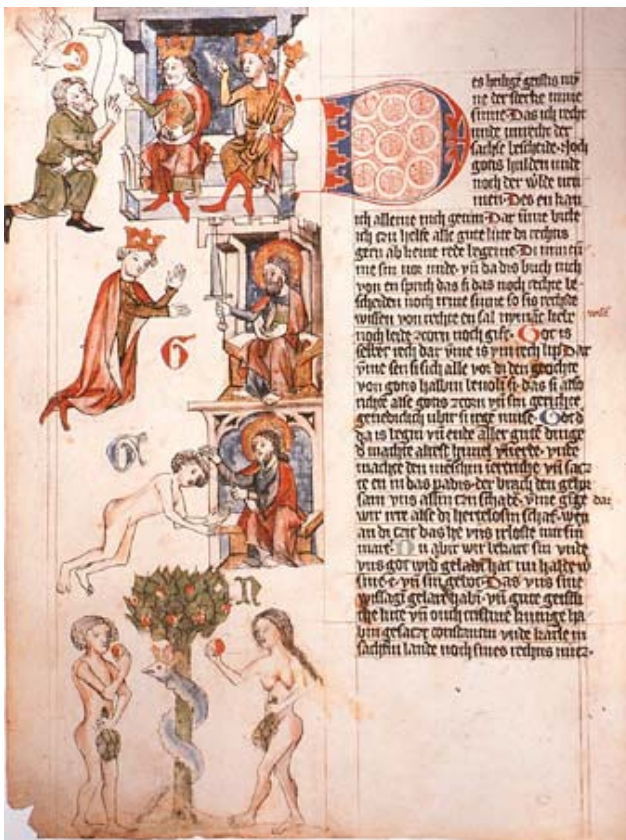 es heilige geistis my
ne der sterke mine
sinne Das ich recht
unde unrecht der
sachse bescheide Noch
gotis hulden unde
noch der w̍lde vru
men Des en kan
ich alleine nich getun Dar u̅me bitte
ich czu helfe alle gute lute di rechtis
gern ab keine rede begeine
me sin vn̅ da dis buch nich
von en sprich das si das noch rechte be
scheiden noch sinne so sis rechste
wissen von rechte en sal nyma̅c
noch leide zcorn noch gift Got is
selber rech dar v̅me is ym rech lip Dar
v̅me sen si sich alle vor di den gerichte
von gotis halbin beuoli si das si also
richte alse gotis zcorn vn̅ sin gerichte
genediclich ubir si muse Got d
da is begin vn̅ ende aller gute dinge
d machte allrest himel vn̅ erde vnde
machte den mēschin vn̅ sacz
te en in das padis der brach den gehor
sam vns allin czu schadē v̅me gi̅ge dar
wir irre alse di hertelosin schaf wen
an di czit das he vns irloste mit sin
mart Nu abir wir bekart sin vnde
vns got wid geladē hat nu halde w̍
sine e vn̅ sin gebot Das vns sine
wissagē gelart habi vn̅ gute geistli
che lute vn̅ ouch cristine kunige ha
bin gesaczt constantin vnde karle in
sachsin lande noch sines rechtis
G
N